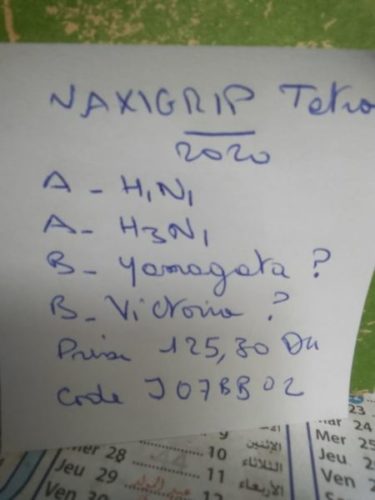 NAXIGRIP Tetra
2020
A - H1N1
A - H3N1
B - Yamagata ?
B - Victoria ?
Prix 125,30 Dh
Code J07BB02
23
mar 24
9 الاثنين
mer 28 10 الثلاثاء Mer 25
Jeu 29 11 الأربعاء Jeu
Ven 30 12 Ven